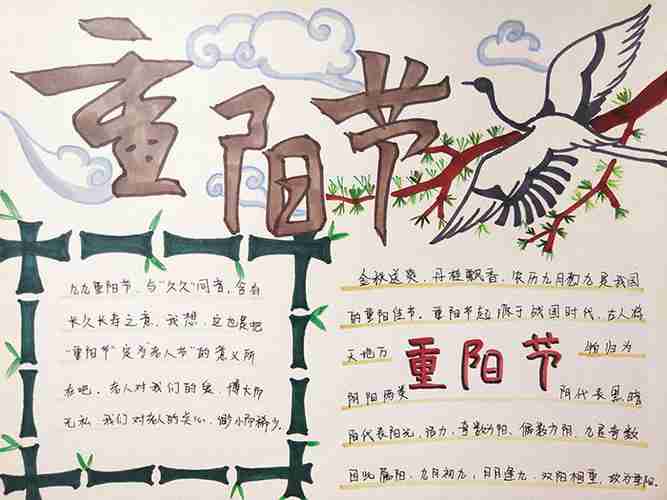 重阳节
九九重阳节，与“久久”同音，含有
长久长寿之意，我想，这也是把
“重阳节”定为老人节”的意义所
在吧。老人对我们的爱，博大而
无私，我们对老人的关心，细小而稀少。
金秋送爽，丹桂飘香，农历九月初九是我国
的重阳佳节，重阳节起源于战国时代，古人将
天地万 重阳节 物归为
阴阳两类 阴代表黑暗
阳代表阳光，活力，奇数为阳，偶数为阴，九是奇数
因此属阳，九月初九，日月逢九，双阳相重，故为重阳。